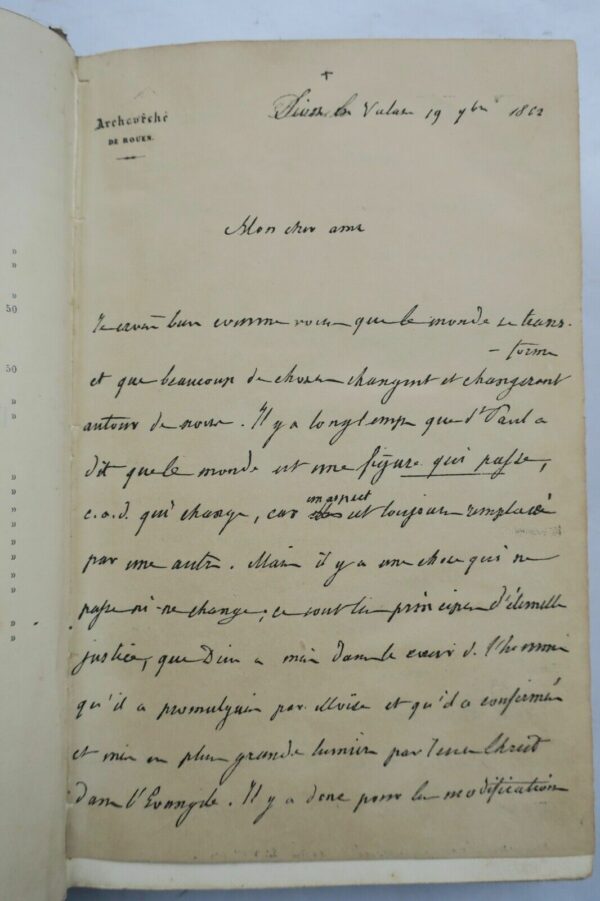 +
Archevêché
DE ROUEN.
19 9bre 1862
Mon cher ami
Je crois bien comme vous que le monde se trans-
- forme
et que beaucoup de choses changent et changeront
autour de nous. Il y a longtemps que St Paul a
dit que le monde est une figure qui passe,
c.a.d. qui change, car un aspect est toujours remplacé
par une autre. Mais il y a une chose qui ne
passe ni ne change; ce sont les principes d'éternelle
justice, que Dieu a mis dans le cœur de l'homme
qu'il a promulgués par Moïse et qu'il a confirmés
et mis en plus grande lumière par Jesus Christ
dans l'Evangile. Il y a donc pour la modification
"
"
"
50
50
"
"
"
"
"
"
"
"
"
"